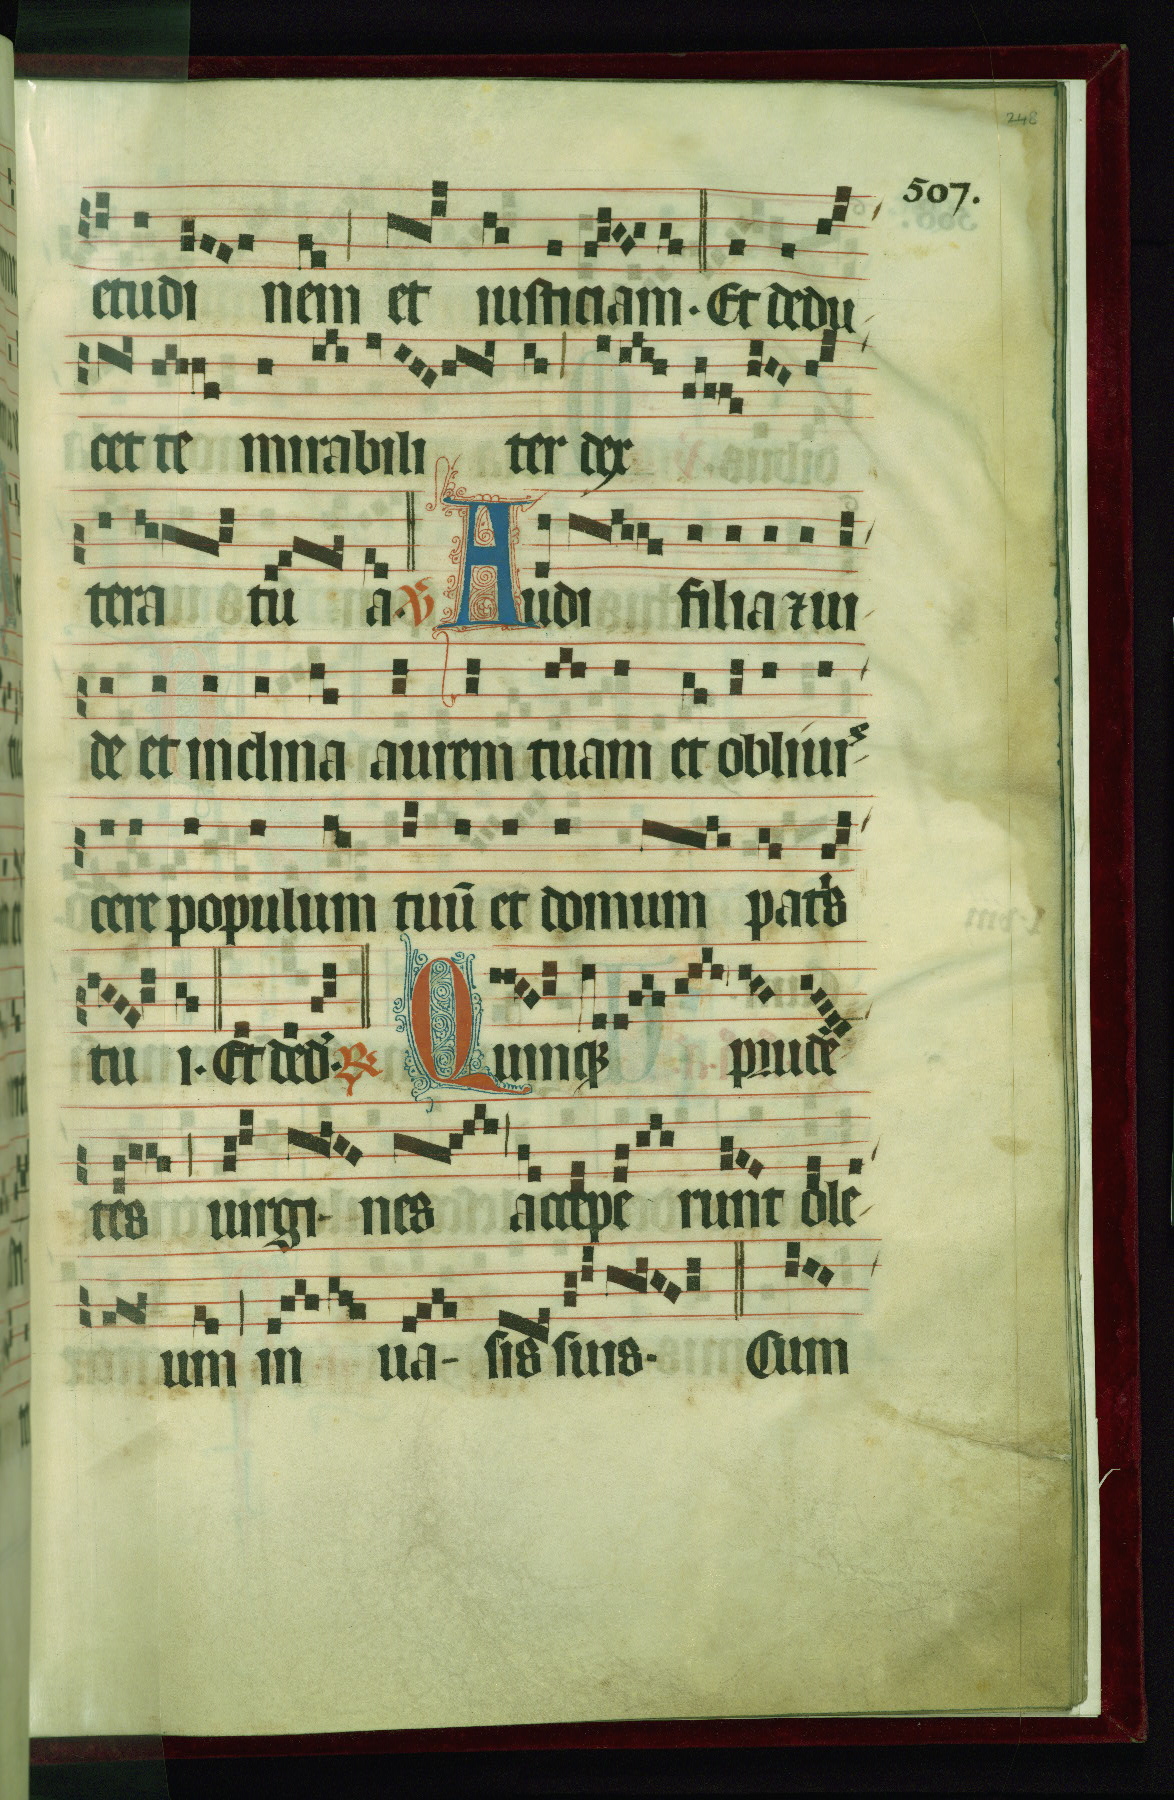 248
507.
etudi nem et iusticiam. Et dedu
cet te mirabili ter dex
tera tu a. V Audi filia ⁊ ui
de et inclina aurem tuam et obliuis
cere populum tuū et domum patˈs
tu i. Et dedˈ. R Quinqꝫ prudē
tes uirgi- nes accepe runt ole
um in ua- sis suis. Cum